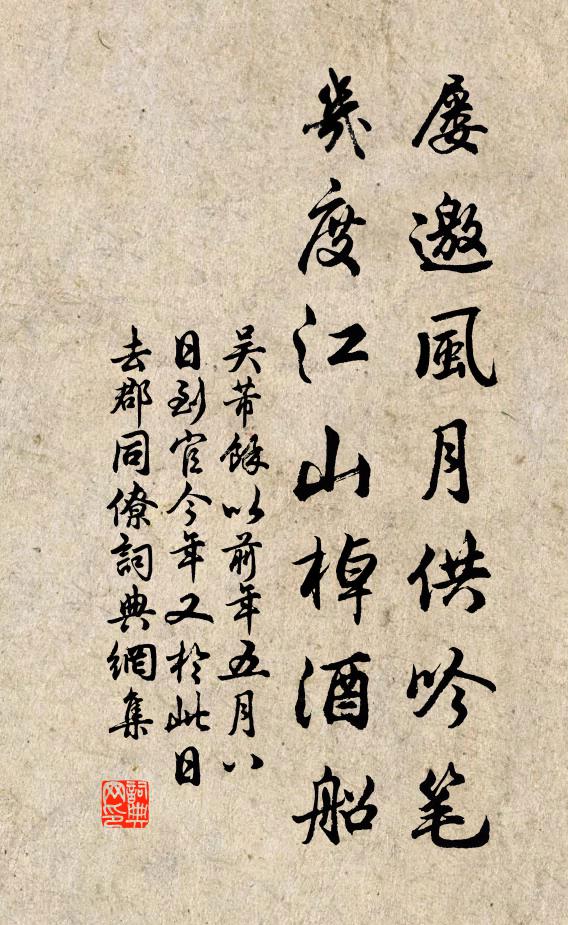 屡邀風月供吟笔
幾度江山棹酒船
吴芾餘以前年五月八
日到官今年又於此日
去郡同僚詞典網集
詞典
网印